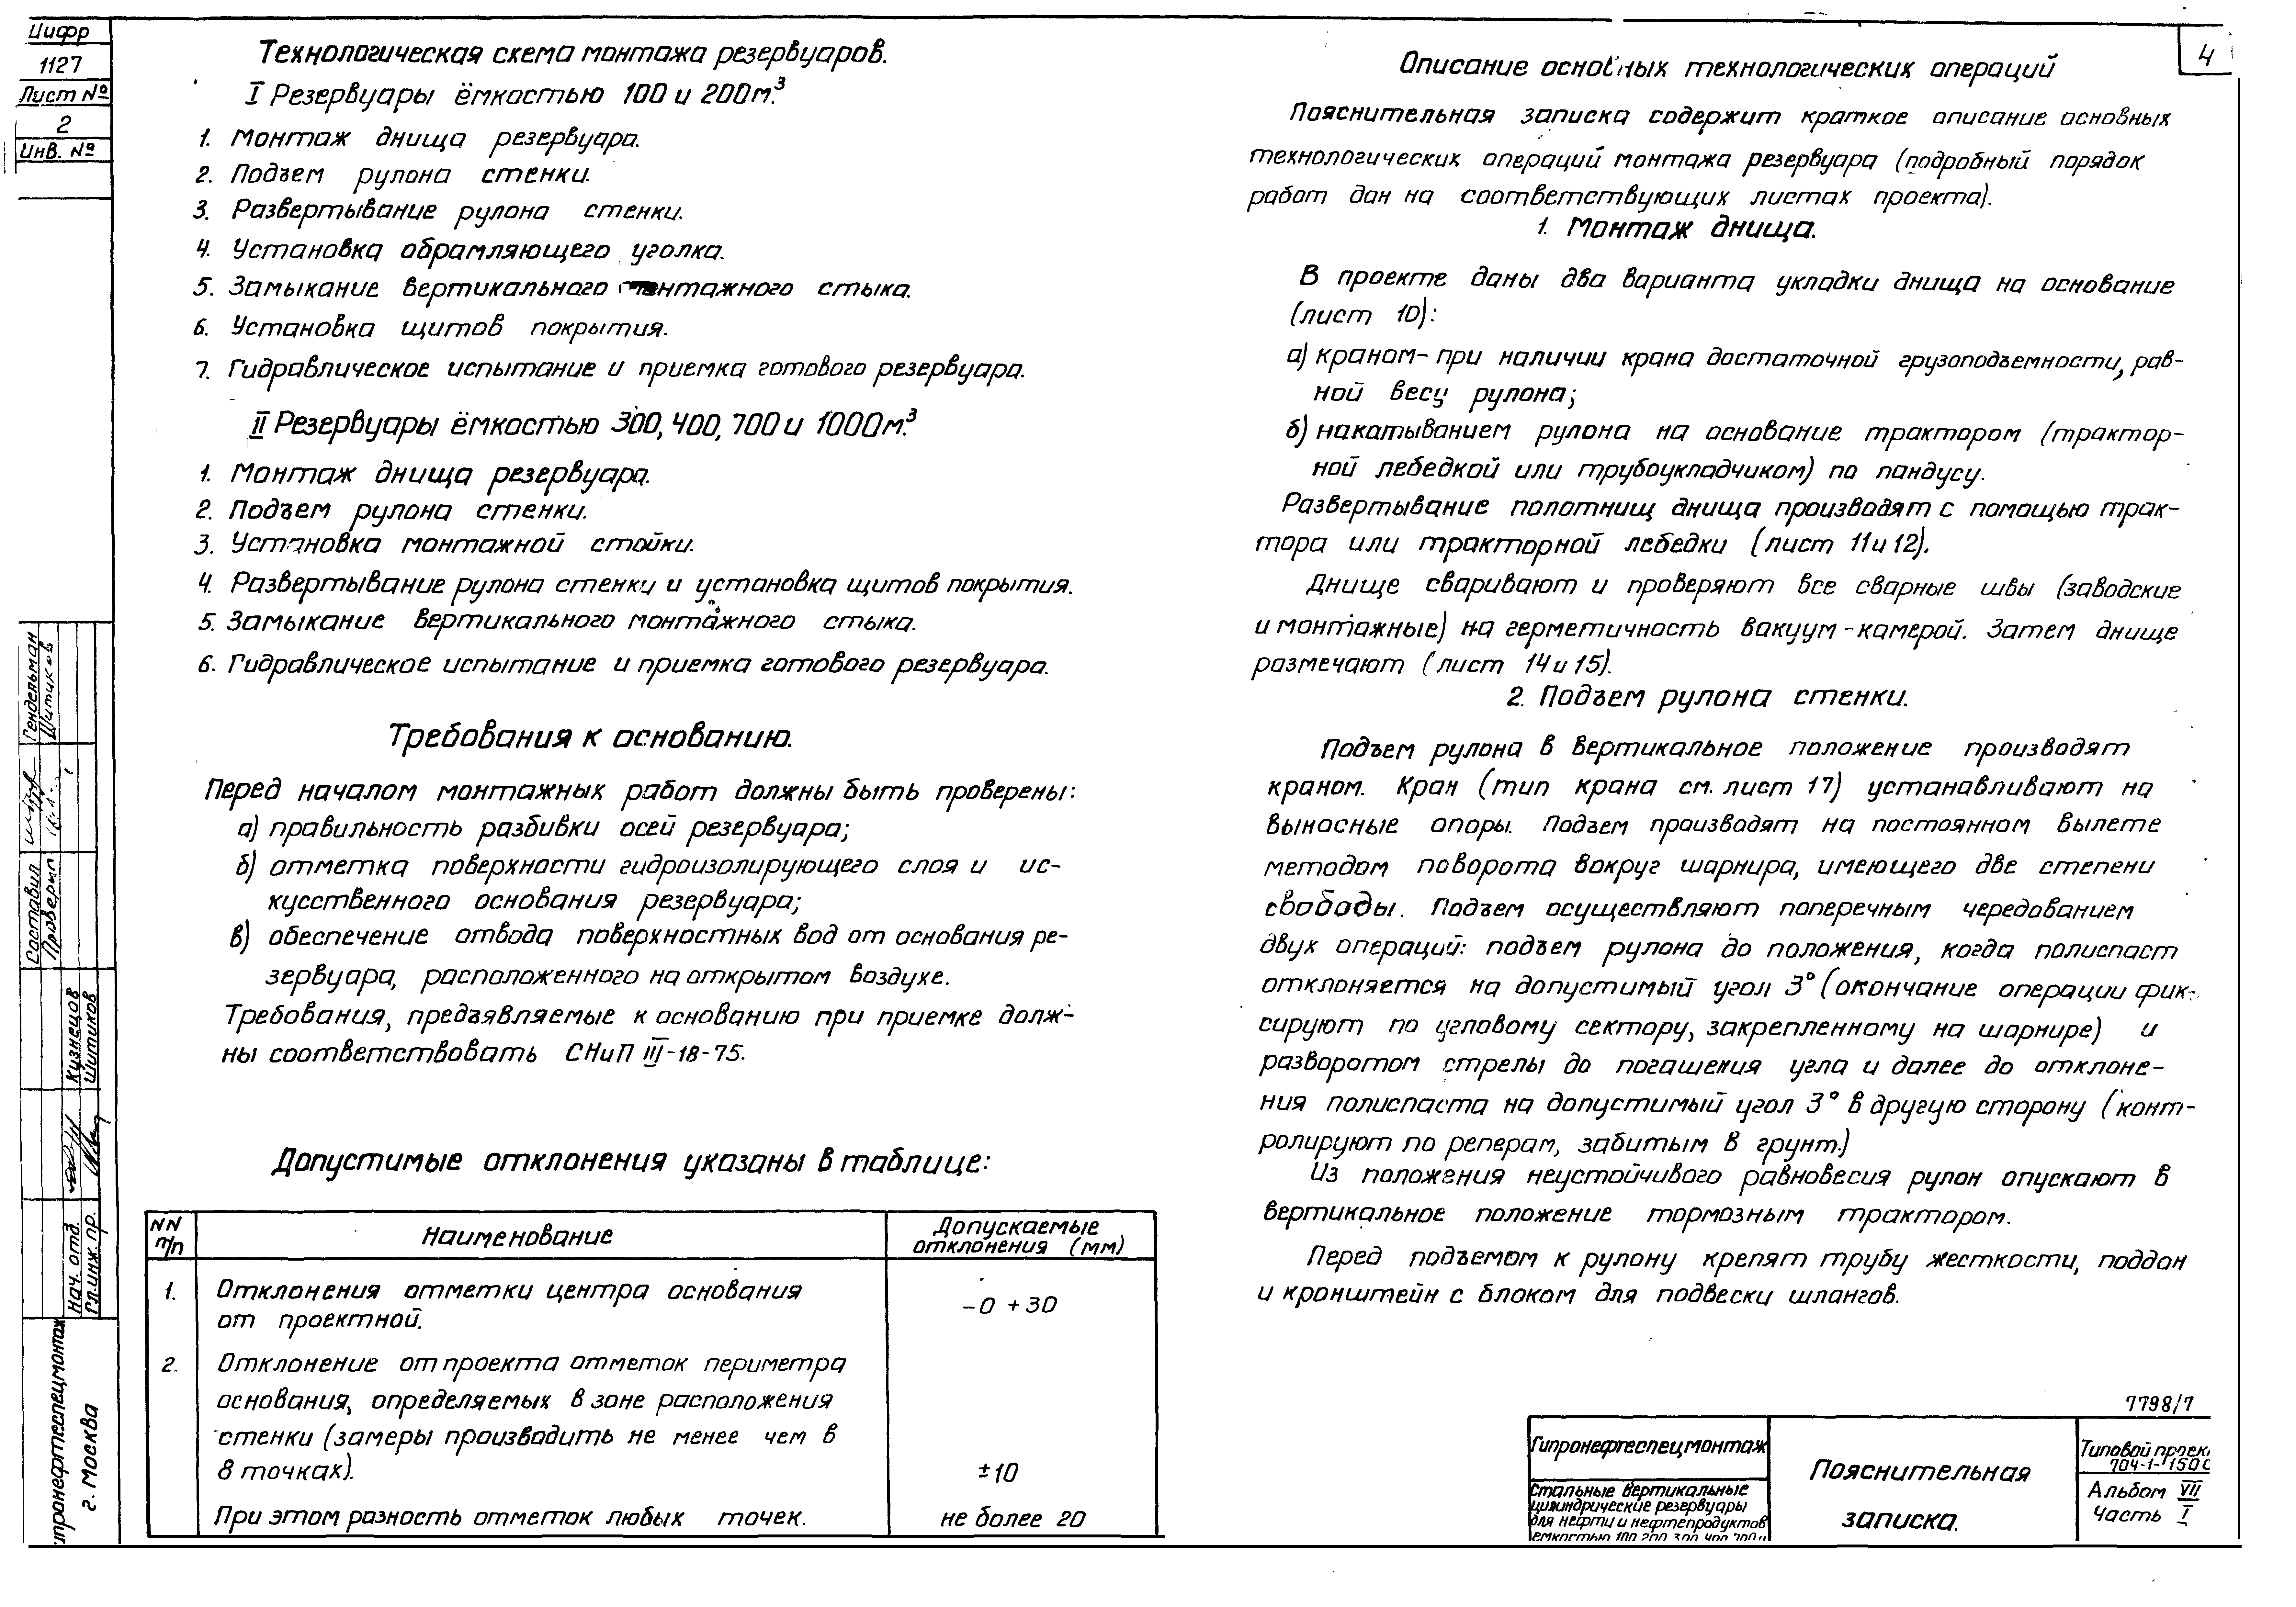 Цифр
1127
Лист №
2
Инв. №
Технологическая схема монтажа резервуаров.
I Резервуары ёмкостью 100 и 200 м.³
1. Монтаж днища резервуара.
2. Подъем рулона стенки.
3. Развертывание рулона стенки.
4. Установка обрамляющего уголка.
5. Замыкание вертикального монтажного стыка.
6. Установка щитов покрытия.
7. Гидравлическое испытание и приемка готового резервуара.
II Резервуары ёмкостью 300, 400, 700 и 1000 м.³
1. Монтаж днища резервуара.
2. Подъем рулона стенки.
3. Установка монтажной стойки.
4. Развертывание рулона стенки и установка щитов покрытия.
5. Замыкание вертикального монтажного стыка.
6. Гидравлическое испытание и приемка готового резервуара.
Требования к основанию.
Перед началом монтажных работ должны быть проверены:
а) правильность разбивки осей резервуара;
б) отметка поверхности гидроизолирующего слоя и ис-
кусственного основания резервуара;
в) обеспечение отвода поверхностных вод от основания ре-
зервуара, расположенного на открытом воздухе.
Требования, предъявляемые к основанию при приемке долж-
ны соответствовать СНиП III-18-75.
Допустимые отклонения указаны в таблице:
NN п/п
Наименование
Допускаемые отклонения (мм)
1. Отклонения отметки центра основания
от проектной.
-0 +30
2. Отклонение от проекта отметок периметра
основания, определяемых в зоне расположения
стенки (замеры производить не менее чем в
8 точках). ±10
При этом разность отметок любых точек. не более 20
4
Описание основных технологических операций
Пояснительная записка содержит краткое описание основных
технологических операций монтажа резервуара (подробный порядок
работ дан на соответствующих листах проекта).
1. Монтаж днища.
В проекте даны два варианта укладки днища на основание
(лист 10):
а) краном - при наличии крана достаточной грузоподъемности, рав-
ной весу рулона;
б) накатыванием рулона на основание трактором (трактор-
ной лебедкой или трубоукладчиком) по пандусу.
Развертывание полотнищ днища производят с помощью трак-
тора или тракторной лебедки (лист 11 и 12).
Днище сваривают и проверяют все сварные швы (заводские
и монтажные) на герметичность вакуум-камерой. Затем днище
размечают (лист 14 и 15).
2. Подъем рулона стенки.
Подъем рулона в вертикальное положение производят
краном. Кран (тип крана см. лист 17) устанавливают на
выносные опоры. Подъем производят на постоянном вылете
методом поворота вокруг шарнира, имеющего две степени
свободы. Подъем осуществляют поперечным чередованием
двух операций: подъем рулона до положения, когда полиспаст
отклоняется на допустимый угол 3° (окончание операции фик-
сируют по угловому сектору, закрепленному на шарнире) и
разворотом стрелы до погашения угла и далее до отклоне-
ния полиспаста на допустимый угол 3° в другую сторону (конт-
ролируют по реперам, забитым в грунт.)
Из положения неустойчивого равновесия рулон опускают в
вертикальное положение тормозным трактором.
Перед подъемом к рулону крепят трубу жесткости, поддон
и кронштейн с блоком для подвески шлангов.
7798/7
Гипронефтеспецмонтаж
Стальные вертикальные
цилиндрические резервуары
для нефти и нефтепродуктов
емкостью 100 200 300 400 700 и
Пояснительная
записка.
Типовой проек
704-1-150С
Альбом VII
Часть I
Составил Гендельман
Проверил Шитиков
Нач. отд. Кузнецов
Гл. инж. пр. Шитиков
ипронефтеспецмонтаж
г. Москва